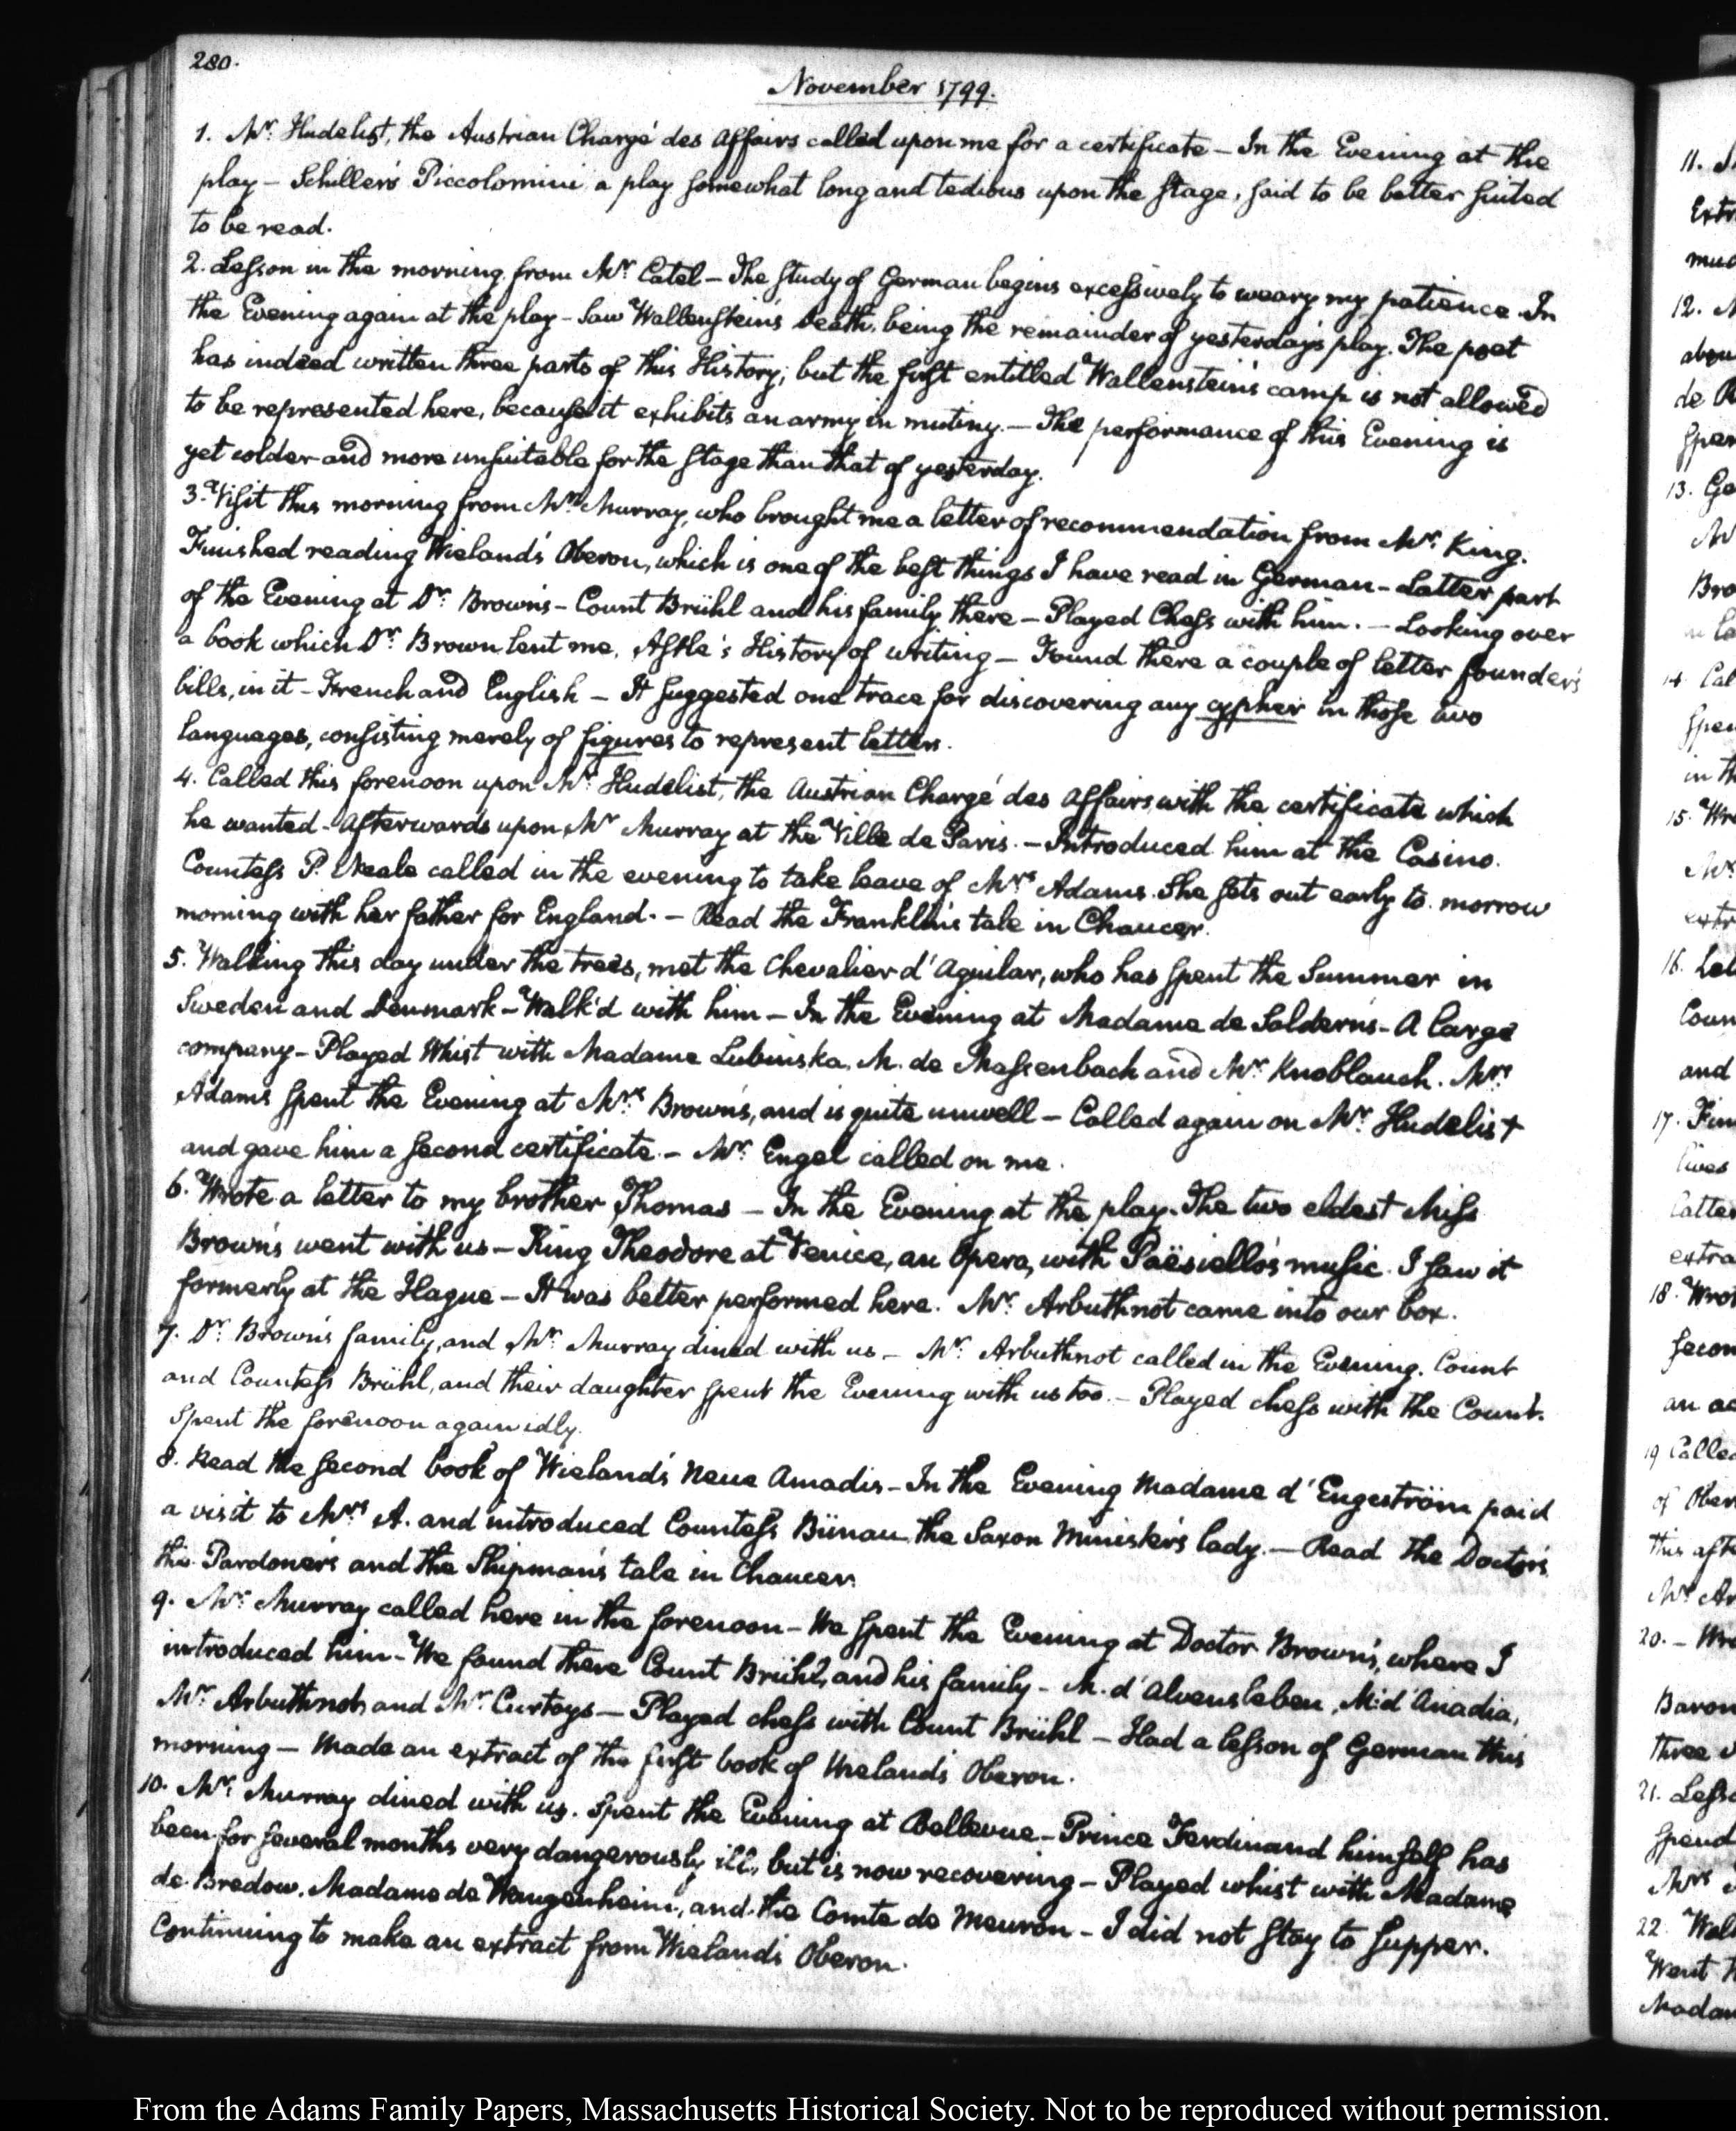 280.
November 1799.
1. Mr. Hudelist, the Austrian Chargé des Affairs called upon me for a certificate – In the Evening at the
play – Schiller's Piccolomini a play somewhat long and tedious upon the stage, said to be better suited
to be read.
2. Lesson in the morning from Mr. Catel – The study of German begins excessively to weary my patience. In
the Evening again at the play – Saw Wallenstein's Death, being the remainder of yesterday's play. The poet
has indeed written three parts of this History; but the first entitled Wallenstein's camp is not allowed
to be represented here, because it exhibits an army in mutiny. – The performance of this Evening is
yet colder and more unsuitable for the stage than that of yesterday.
3. Visit this morning from Mr. Murray, who brought me a letter of recommendation from Mr. King.
Finished reading Wieland's Oberon, which is one of the best things I have read in German – Latter part
of the Evening at Dr. Brown's – Count Brühl and his family there – Played Chess with him. – Looking over
a book which Dr. Brown lent me, Astle's History of writing – Found there a couple of letter founder's
bills, in it – French and English – It suggested one trace for discovering any cypher in those two
languages, consisting merely of figures to represent letters.
4. Called this forenoon upon Mr. Hudelist, the Austrian Chargé des Affairs, with the certificate which
he wanted – Afterwards upon Mr Murray at the Ville de Paris. – Introduced him at the Casino.
Countess P. Neale called in the evening to take leave of Mrs Adams. She sets out early to-morrow
morning with her father for England. – Read the Franklin's tale in Chaucer.
5. Walking this day under the trees, met the Chevalier d'Aguilar, who has spent the Summer in
Sweden and Denmark – Walk'd with him – In the Evening at Madame de Soldern's – A large
company – Played Whist with Madame Lubinska, M. de Massenbach and Mr. Knoblauch. Mrs
Adams spent the Evening at Mrs Brown's, and is quite unwell – Called again on Mr. Hudelist
and gave him a second certificate. – Mr. Engel called on me.
6. Wrote a letter to my brother Thomas – In the Evening at the play. The two eldest Miss
Brown's went with us – King Theodore at Venice, an Opera, with Paësiello's music. I saw it
formerly at the Hague – It was better performed here. Mr. Arbuthnot came into our box.
7. Dr. Brown's family, and Mr. Murray dined with us – Mr. Arbuthnot called in the Evening. Count
and Countess Brühl, and their daughter spent the Evening with us too. – Played chess with the Count.
Spent the forenoon again idly.
8. Read the second book of Wieland's Neue Amadis – In the Evening Madame d'Engeström paid
a visit to Mrs A. and introduced Countess Bünau the Saxon Minister's lady. – Read the Doctor's
the Pardoner's and the Shipman's tale in Chaucer.
9. Mr. Murray called here in the forenoon – We spent the Evening at Doctor Brown's, where I
introduced him – We found there Count Brühl, and his family – M. d'Alvensleben, M. d'Anadia,
Mr. Arbuthnot, and Mr. Curtoys – Played chess with Count Brühl – Had a lesson of German this
morning – Made an extract of the first book of Wieland's Oberon.
10. Mr. Murray dined with us. Spent the Evening at Bellevue – Prince Ferdinand himself has
been for several months very dangerously ill, but is now recovering – Played whist with Madame
de Bredow, Madame de Wangenheim, and the Comte de Meuron – I did not stay to supper.
Continuing to make an extract from Wieland's Oberon.
11.
12.
13. Ge
14. Cal
15. Wro
16. Let
17. Fin
18. Wrot
19 Called
20. –
21. Less
22. Wal
From the Adams Family Papers, Massachusetts Historical Society. Not to be reproduced without permission.